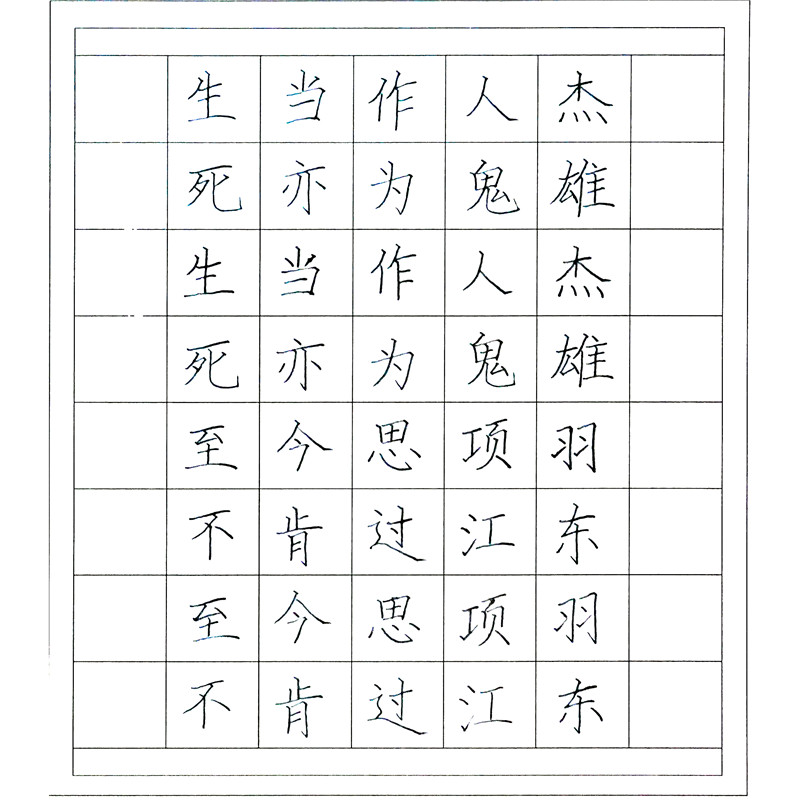 生当作人杰
死亦为鬼雄
生当作人杰
死亦为鬼雄
至今思项羽
不肯过江东
至今思项羽
不肯过江东